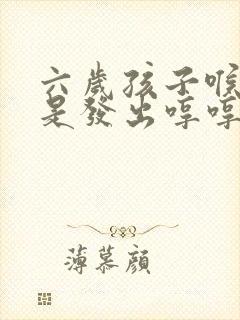 六歲孩子喉
是發出哼哼
薄慕顏